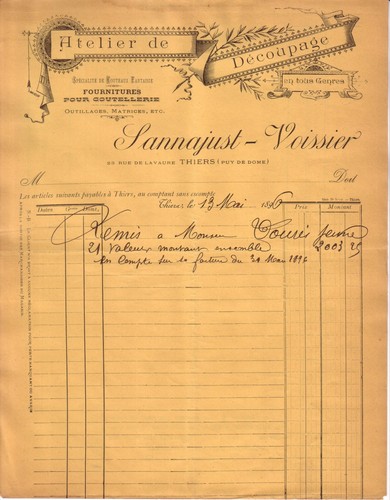 Atelier de
Découpage
en tous Genres
Spécialité de Nouveaux Fantaisie
FOURNITURES
POUR COUTELLERIE
OUTILLAGES, MATRICES, ETC.
Sannajust-Voissier
23 RUE DE LAVAURE THIERS (PUY DE DOME)
M Doit
Les articles suivants payables à Thiers, au comptant sans escompte
Thiers le 13 Mai 1896
Dates Prix Montant
Remis a Monsieur jeune
21 Valeur montant ensemble 2003 25
en Compte sur sa facture du 1896